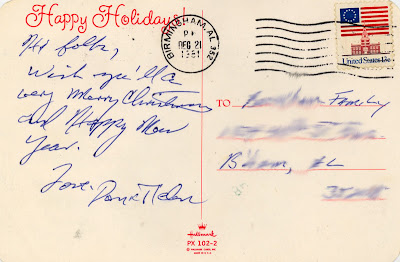 Happy Holidays!
Hi folks,
Wish you'll a
very Merry Christmas
and Happy New
Year.
Love,
BIRMINGHAM, AL 352
PM
DEC 21
1981
United States 15c
TO
Family
B'ham, AL
Hallmark
PX 102-2